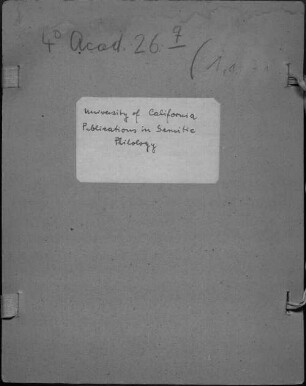 4° Acad. 26 q
University of California
Publications in Semitic
Philology